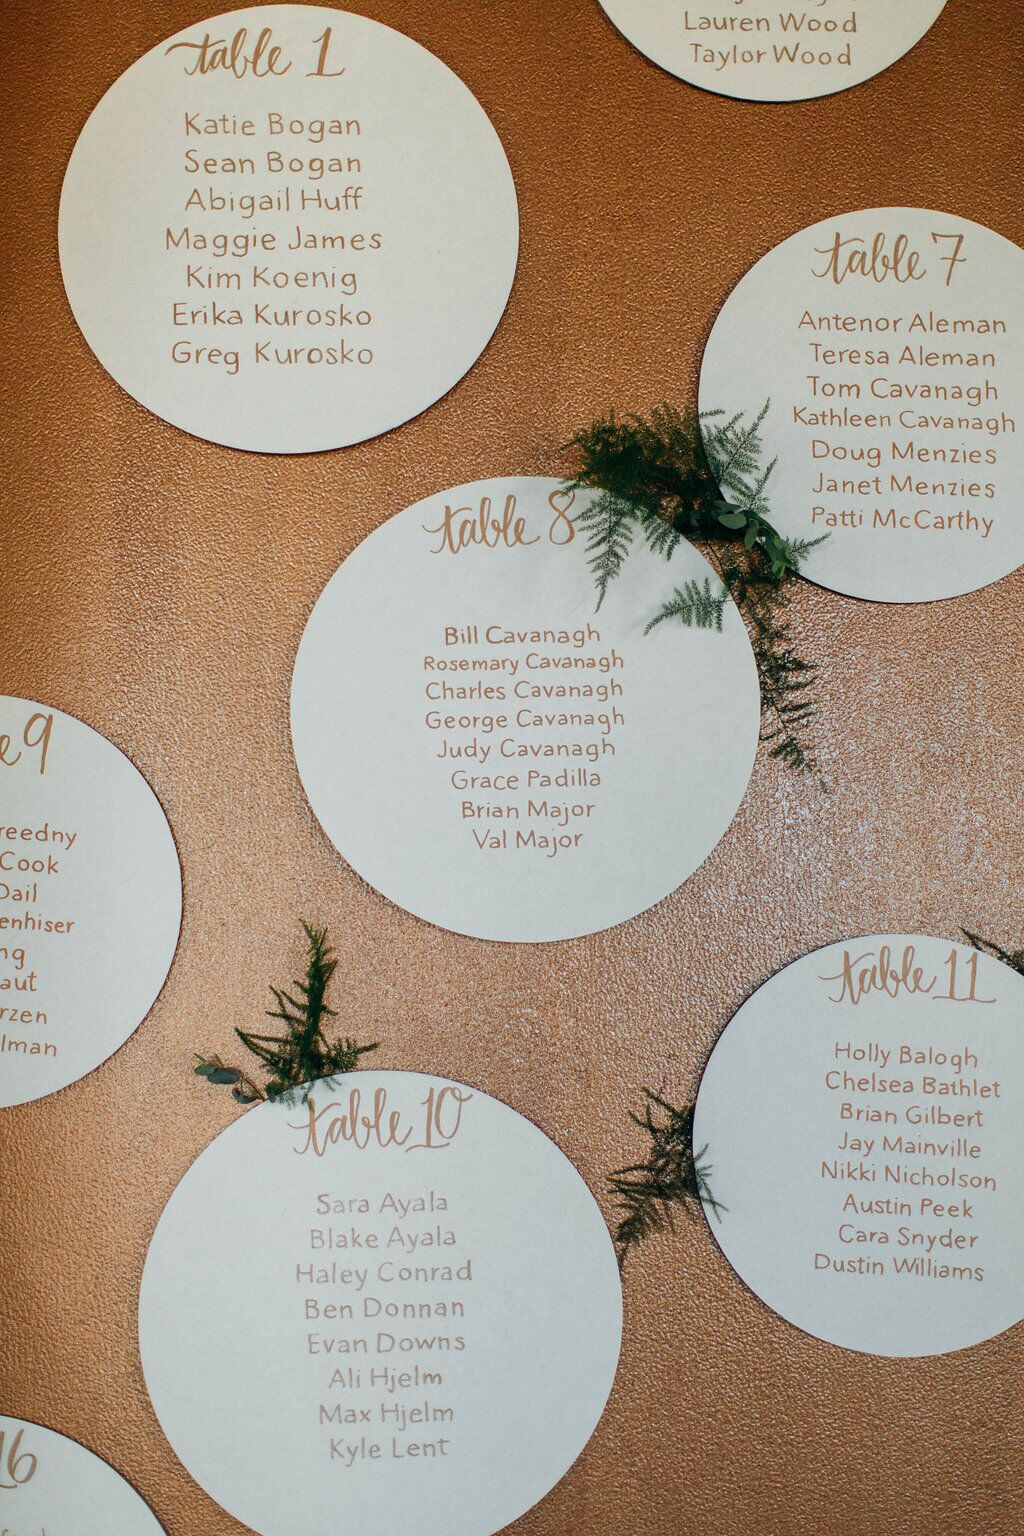 table 1
Katie Bogan
Sean Bogan
Abigail Huff
Maggie James
Kim Koenig
Erika Kurosko
Greg Kurosko
Lauren Wood
Taylor Wood
table 7
Antenor Aleman
Teresa Aleman
Tom Cavanagh
Kathleen Cavanagh
Doug Menzies
Janet Menzies
Patti McCarthy
table 8
Bill Cavanagh
Rosemary Cavanagh
Charles Cavanagh
George Cavanagh
Judy Cavanagh
Grace Padilla
Brian Major
Val Major
9
Cook
Dail
table 10
Sara Ayala
Blake Ayala
Haley Conrad
Ben Donnan
Evan Downs
Ali Hjelm
Max Hjelm
Kyle Lent
table 11
Holly Balogh
Chelsea Bathlet
Brian Gilbert
Jay Mainville
Nikki Nicholson
Austin Peek
Cara Snyder
Dustin Williams
16